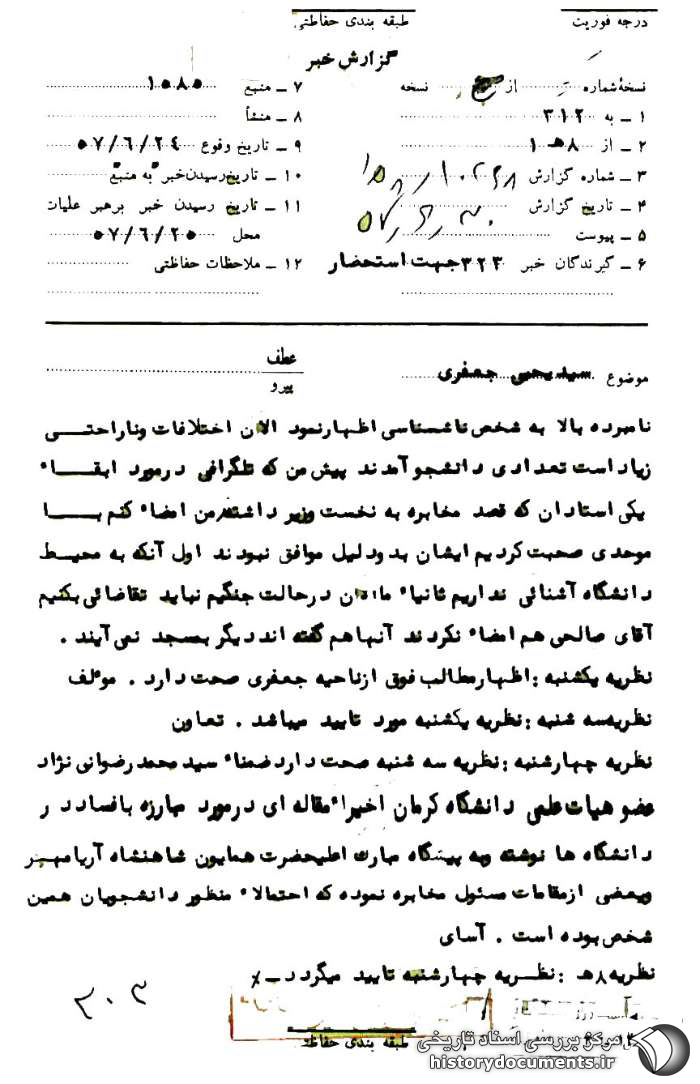 درجه فوریت
طبقه بندی حفاظتی
گزارش خبر
نسخه‌شماره از نسخه
۱ ـ به ۳۱۲
۲ ـ از ۸هـ۱
۳ ـ شماره گزارش
۴ ـ تاریخ گزارش
۵ ـ پیوست
۶ ـ گیرندگان خبر ۳۲۳جهت استحضار
۷ ـ منبع ۱۰۸۵
۸ ـ منشأ
۹ ـ تاریخ وقوع ۵۷/۶/۲۴
۱۰ ـ تاریخ‌رسیدن‌خبر به منبع
۱۱ ـ تاریخ رسیدن خبر برهبر عملیات
محل ۵۷/۶/۲۵
۱۲ ـ ملاحظات حفاظتی
موضوع سیدیحیی جعفری
عطف
پیرو
نامبرده بالا به شخص ناشناسی اظهارنمود الان اختلافات وناراحتــی
زیاد است تعدادی دانشجو آمدند پیش من که تلگرافی درمورد ابقــاء
یکی استادان که قصد مخابره به نخست وزیر داشتند من امضاء کنم بــا
موحدی صحبت کردیم ایشان بدو دلیل موافق نبودند اول آنکه به محیـط
دانشگاه آشنائی نداریم ثانیاء ماالان درحالت جنگیم نباید تقاضائی بکنیم
آقای صالحی هم امضاء نکردند آنها هم گفته اند دیگر بمسجد نمی آیند .
نظریه یکشنبه : اظهار مطالب فوق ازناحیه جعفری صحت دارد . موءلف
نظریه‌سه شنبه : نظریه یکشنبه مورد تایید میباشد . تعاون
نظریه چهارشنبه : نظریه سه شنبه صحت دارد ضمناء سید محمد رضوانی نژاد
عضو هیات علمی دانشگاه کرمان اخیراء مقاله ای درمورد مبارزه بافساد در
دانشگاه ها نوشته وبه پیشگاه مبارک اعلیحضرت همایون شاهنشاه آریامهـر
وبعضی ازمقامات مسئول مخابره نموده که احتمالاء منظور دانشجویان همین
شخص بوده است . آسای
نظریه ۸هـ : نظــریه چهارشنبه تایید میگردد ـ ٪
۳۰۳
طبقه بندی حفاظتی
مرکز بررسی اسناد تاریخی
historydocuments.ir